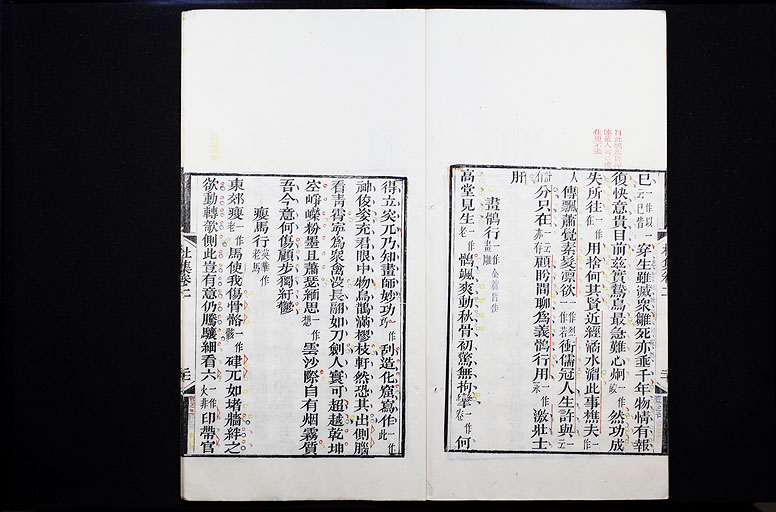 已一作以一云已皆穿生雖滅眾雛死亦垂千年物情有報
復快意貴目前茲實鷙鳥最急難心炯一作然功成
失所往一作在用捨何其賢近經潏水湄此事樵夫一作
人傳飄蕭覺素髮凜欲一作烈一作若衝儒冠人生許與一云
分只在一云亦存顧盼間聊為義鶻行用一作永激壯士
肝
畫鶻行一作畫雕
高堂見生一作老鶻颯爽動秋骨初驚無拘攣一作卷何
得立突兀乃知畫師妙功一作巧刮造化窟寫作一作此
神俊姿充君眼中物烏鵲滿樛枝軒然恐其出側腦
看青霄寧為眾禽沒長翮如刀劍人寰可超越乾坤
空崢嶸粉墨且蕭瑟緬思一作想雲沙際自有烟霧質
吾今意何傷顧步獨紆鬱
瘦馬行英華作老馬
東郊瘦一作老馬使我傷骨骼一作骸硉兀如堵牆絆之
欲動轉欹側此豈有意仍騰驤細看六一作火非印帶官
杜集卷二